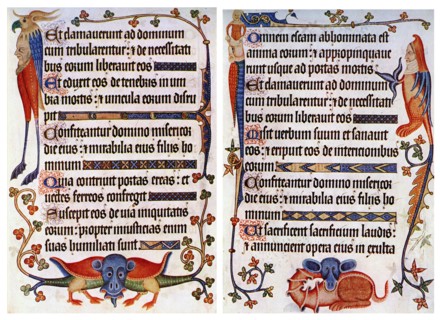 Et clamauerunt ad dominum
cum tribularentur: & de necessitati
bus eorum liberauit eos
Et eduxit eos de tenebris in um
bra mortis: & uincula eorum disru
pit
Confiteantur domino misericor
die eius: & mirabilia eius filijs ho
minum
Quia contriuit portas ereas: et
uectes ferreos confregit
Suscepit eos de uia iniquitatis
eorum: propter iniusticias enim
suas humiliati sunt
Omnem escam abhominata est
anima eorum: & appropinquaue
runt usque ad portas mortis:
Et clamauerunt ad dominum
cum tribularentur: & de necessitati
bus eorum liberauit eos
Misit uerbum suum et sanauit
eos: & eripuit eos de intericionibus
eorum
Confiteantur domino misericor
die eius: & mirabilia eius filijs ho
minum
Et sacrificent sacrificium laudis:
& annuncient opera eius in exulta